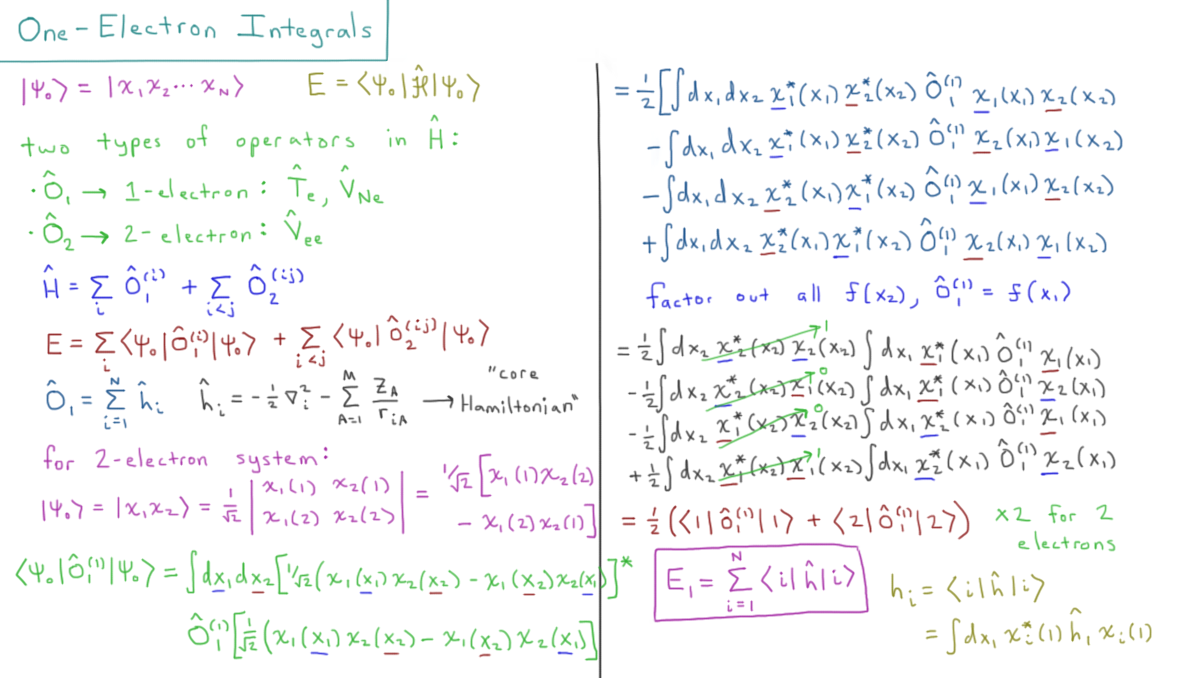 One-Electron Integrals
|Ψ₀⟩ = |χ₁χ₂⋯χ_N⟩    E = ⟨Ψ₀|Ĥ|Ψ₀⟩
two types of operators in Ĥ:
· Ô₁ → 1-electron: T̂ₑ, V̂_Ne
· Ô₂ → 2-electron: V̂ₑₑ
Ĥ = Σ_i Ô₁^(i) + Σ_{i<j} Ô₂^(ij)
E = Σ_i ⟨Ψ₀|Ô₁^(i)|Ψ₀⟩ + Σ_{i<j} ⟨Ψ₀|Ô₂^(ij)|Ψ₀⟩
Ô₁ = Σ_{i=1}^N ĥ_i    ĥ_i = -½∇_i² - Σ_{A=1}^M Z_A/r_iA → "core Hamiltonian"
for 2-electron system:
|Ψ₀⟩ = |χ₁χ₂⟩ = 1/√2 |χ₁(1) χ₂(1) ; χ₁(2) χ₂(2)| = 1/√2 [χ₁(1)χ₂(2) - χ₁(2)χ₂(1)]
⟨Ψ₀|Ô₁^(1)|Ψ₀⟩ = ∫dx₁dx₂[1/√2(χ₁(x₁)χ₂(x₂) - χ₁(x₂)χ₂(x₁)]*
Ô₁^(1)[1/√2(χ₁(x₁)χ₂(x₂) - χ₁(x₂)χ₂(x₁)]
= ½[∫dx₁dx₂ χ₁*(x₁)χ₂*(x₂) Ô₁^(1) χ₁(x₁)χ₂(x₂)
-∫dx₁dx₂ χ₁*(x₁)χ₂*(x₂) Ô₁^(1) χ₂(x₁)χ₁(x₂)
-∫dx₁dx₂ χ₂*(x₁)χ₁*(x₂) Ô₁^(1) χ₁(x₁)χ₂(x₂)
+∫dx₁dx₂ χ₂*(x₁)χ₁*(x₂) Ô₁^(1) χ₂(x₁)χ₁(x₂)
factor out all f(x₂), Ô₁^(1) = f(x₁)
= ½∫dx₂ χ₂*(x₂)χ₂(x₂) 1 ∫dx₁ χ₁*(x₁) Ô₁^(1) χ₁(x₁)
-½∫dx₂ χ₂*(x₂)χ₁(x₂) 0 ∫dx₁ χ₁*(x₁) Ô₁^(1) χ₂(x₁)
-½∫dx₂ χ₁*(x₂)χ₂(x₂) 0 ∫dx₁ χ₂*(x₁) Ô₁^(1) χ₁(x₁)
+½∫dx₂ χ₁*(x₂)χ₁(x₂) 1 ∫dx₁ χ₂*(x₁) Ô₁^(1) χ₂(x₁)
= ½(⟨1|Ô₁^(1)|1⟩ + ⟨2|Ô₁^(1)|2⟩) x2 for 2 electrons
E₁ = Σ_{i=1}^N ⟨i|ĥ|i⟩    h_i = ⟨i|ĥ|i⟩
= ∫dx₁ χ_i*(1) ĥ₁ χ_i(1)